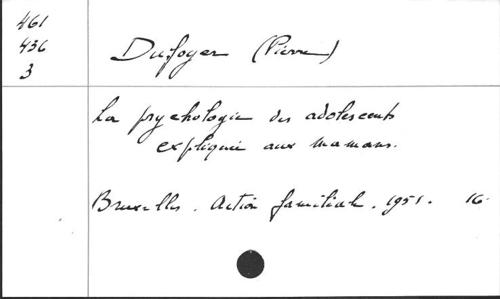 461
436
3
Dufoyer (Pierre)
La psychologie des adolescents
expliquée aux mamans.
Bruxelles. Action familiale. 1951. 16